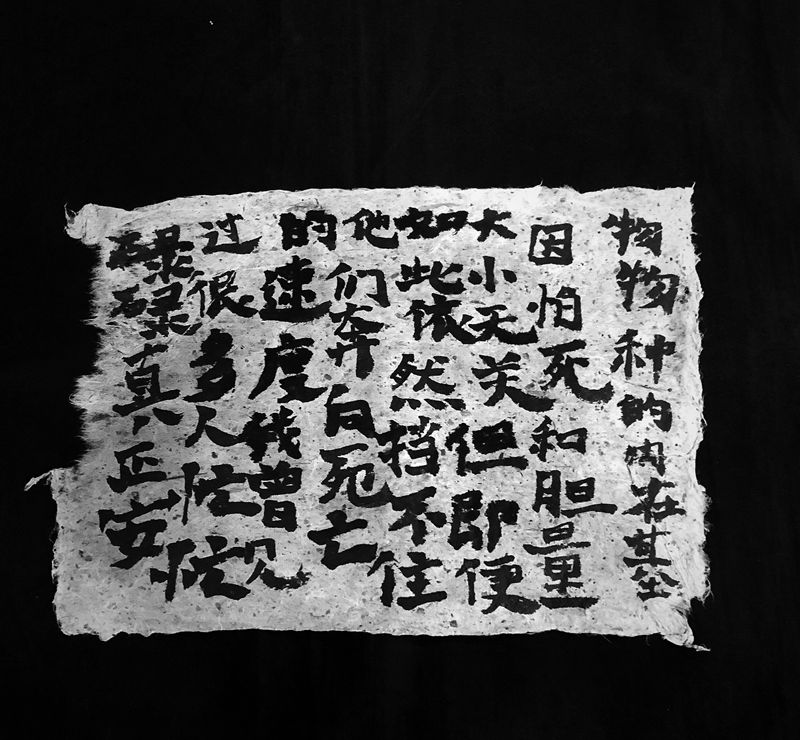 物物种的内在基
因怕死和胆量
大小无关但即便
如此依然挡不住
他们奔向死亡
的速度我曾见
过很多人忙忙
碌碌真正安